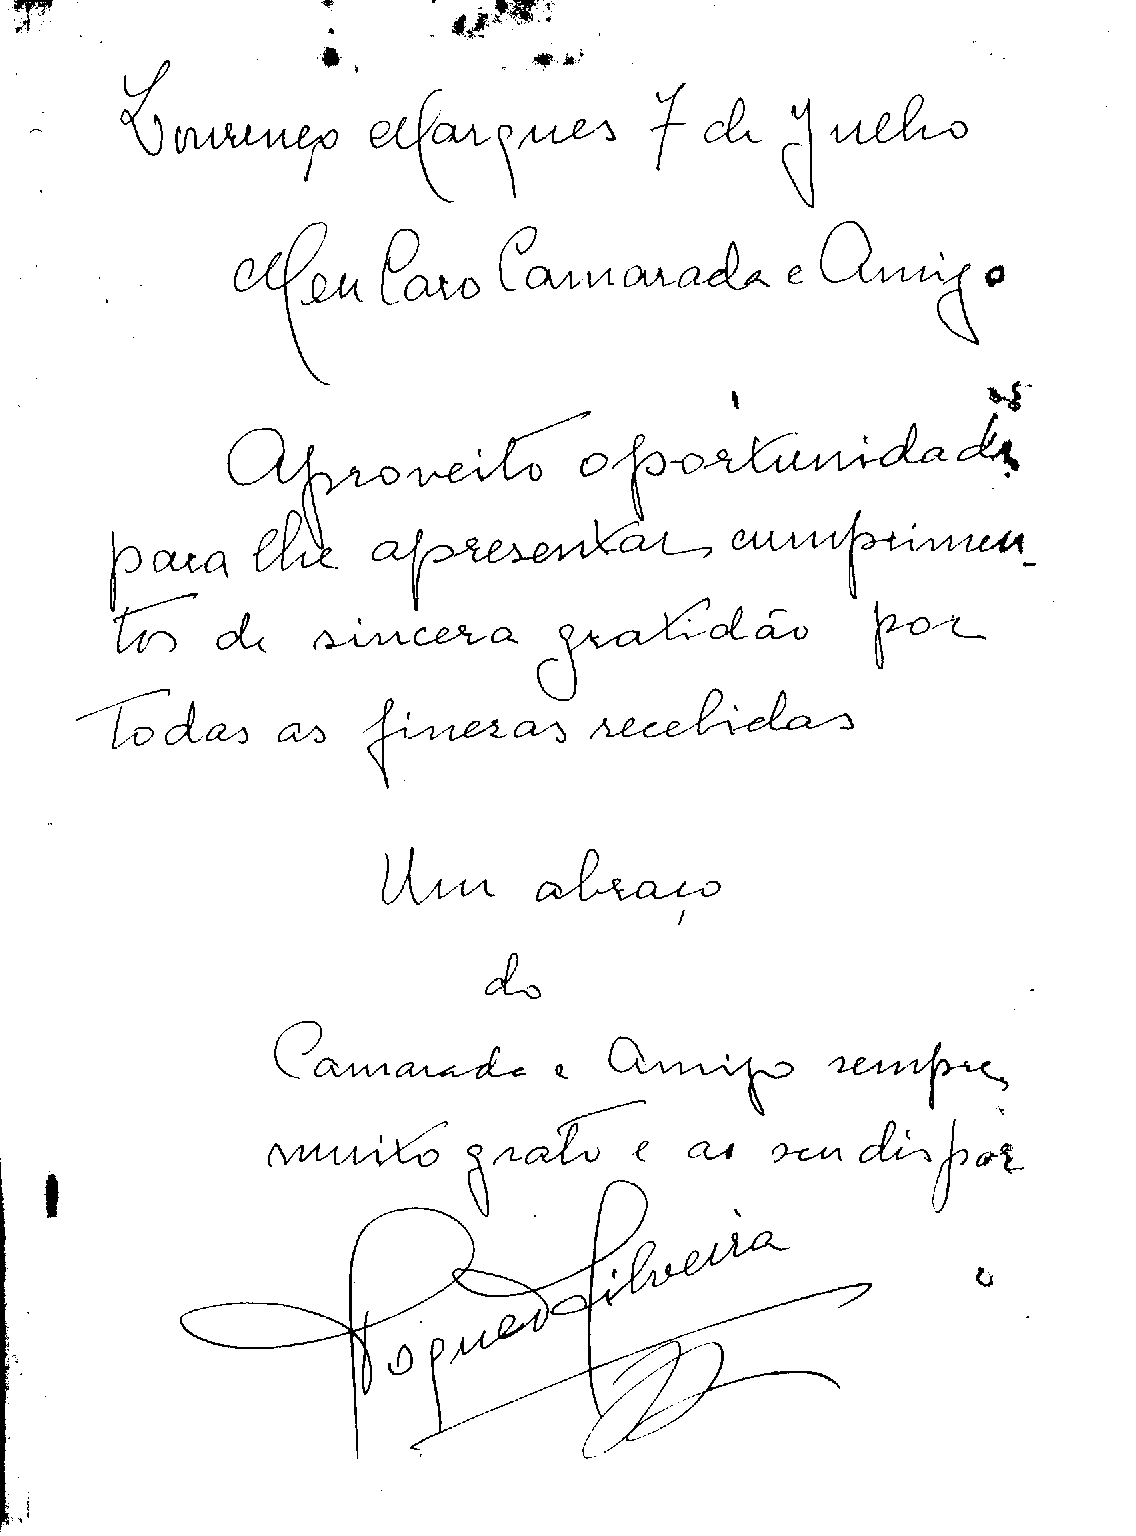 Lourenço Marques 7 de Julho
Meu Caro Camarada e Amigo
Aproveito oportunidade
para lhe apresentar cumprimen-
tos de sincera gratidão por
todas as finezas recebidas
Um abraço
do
Camarada e Amigo sempre
muito grato e ao seu dispor
Roque Silveira